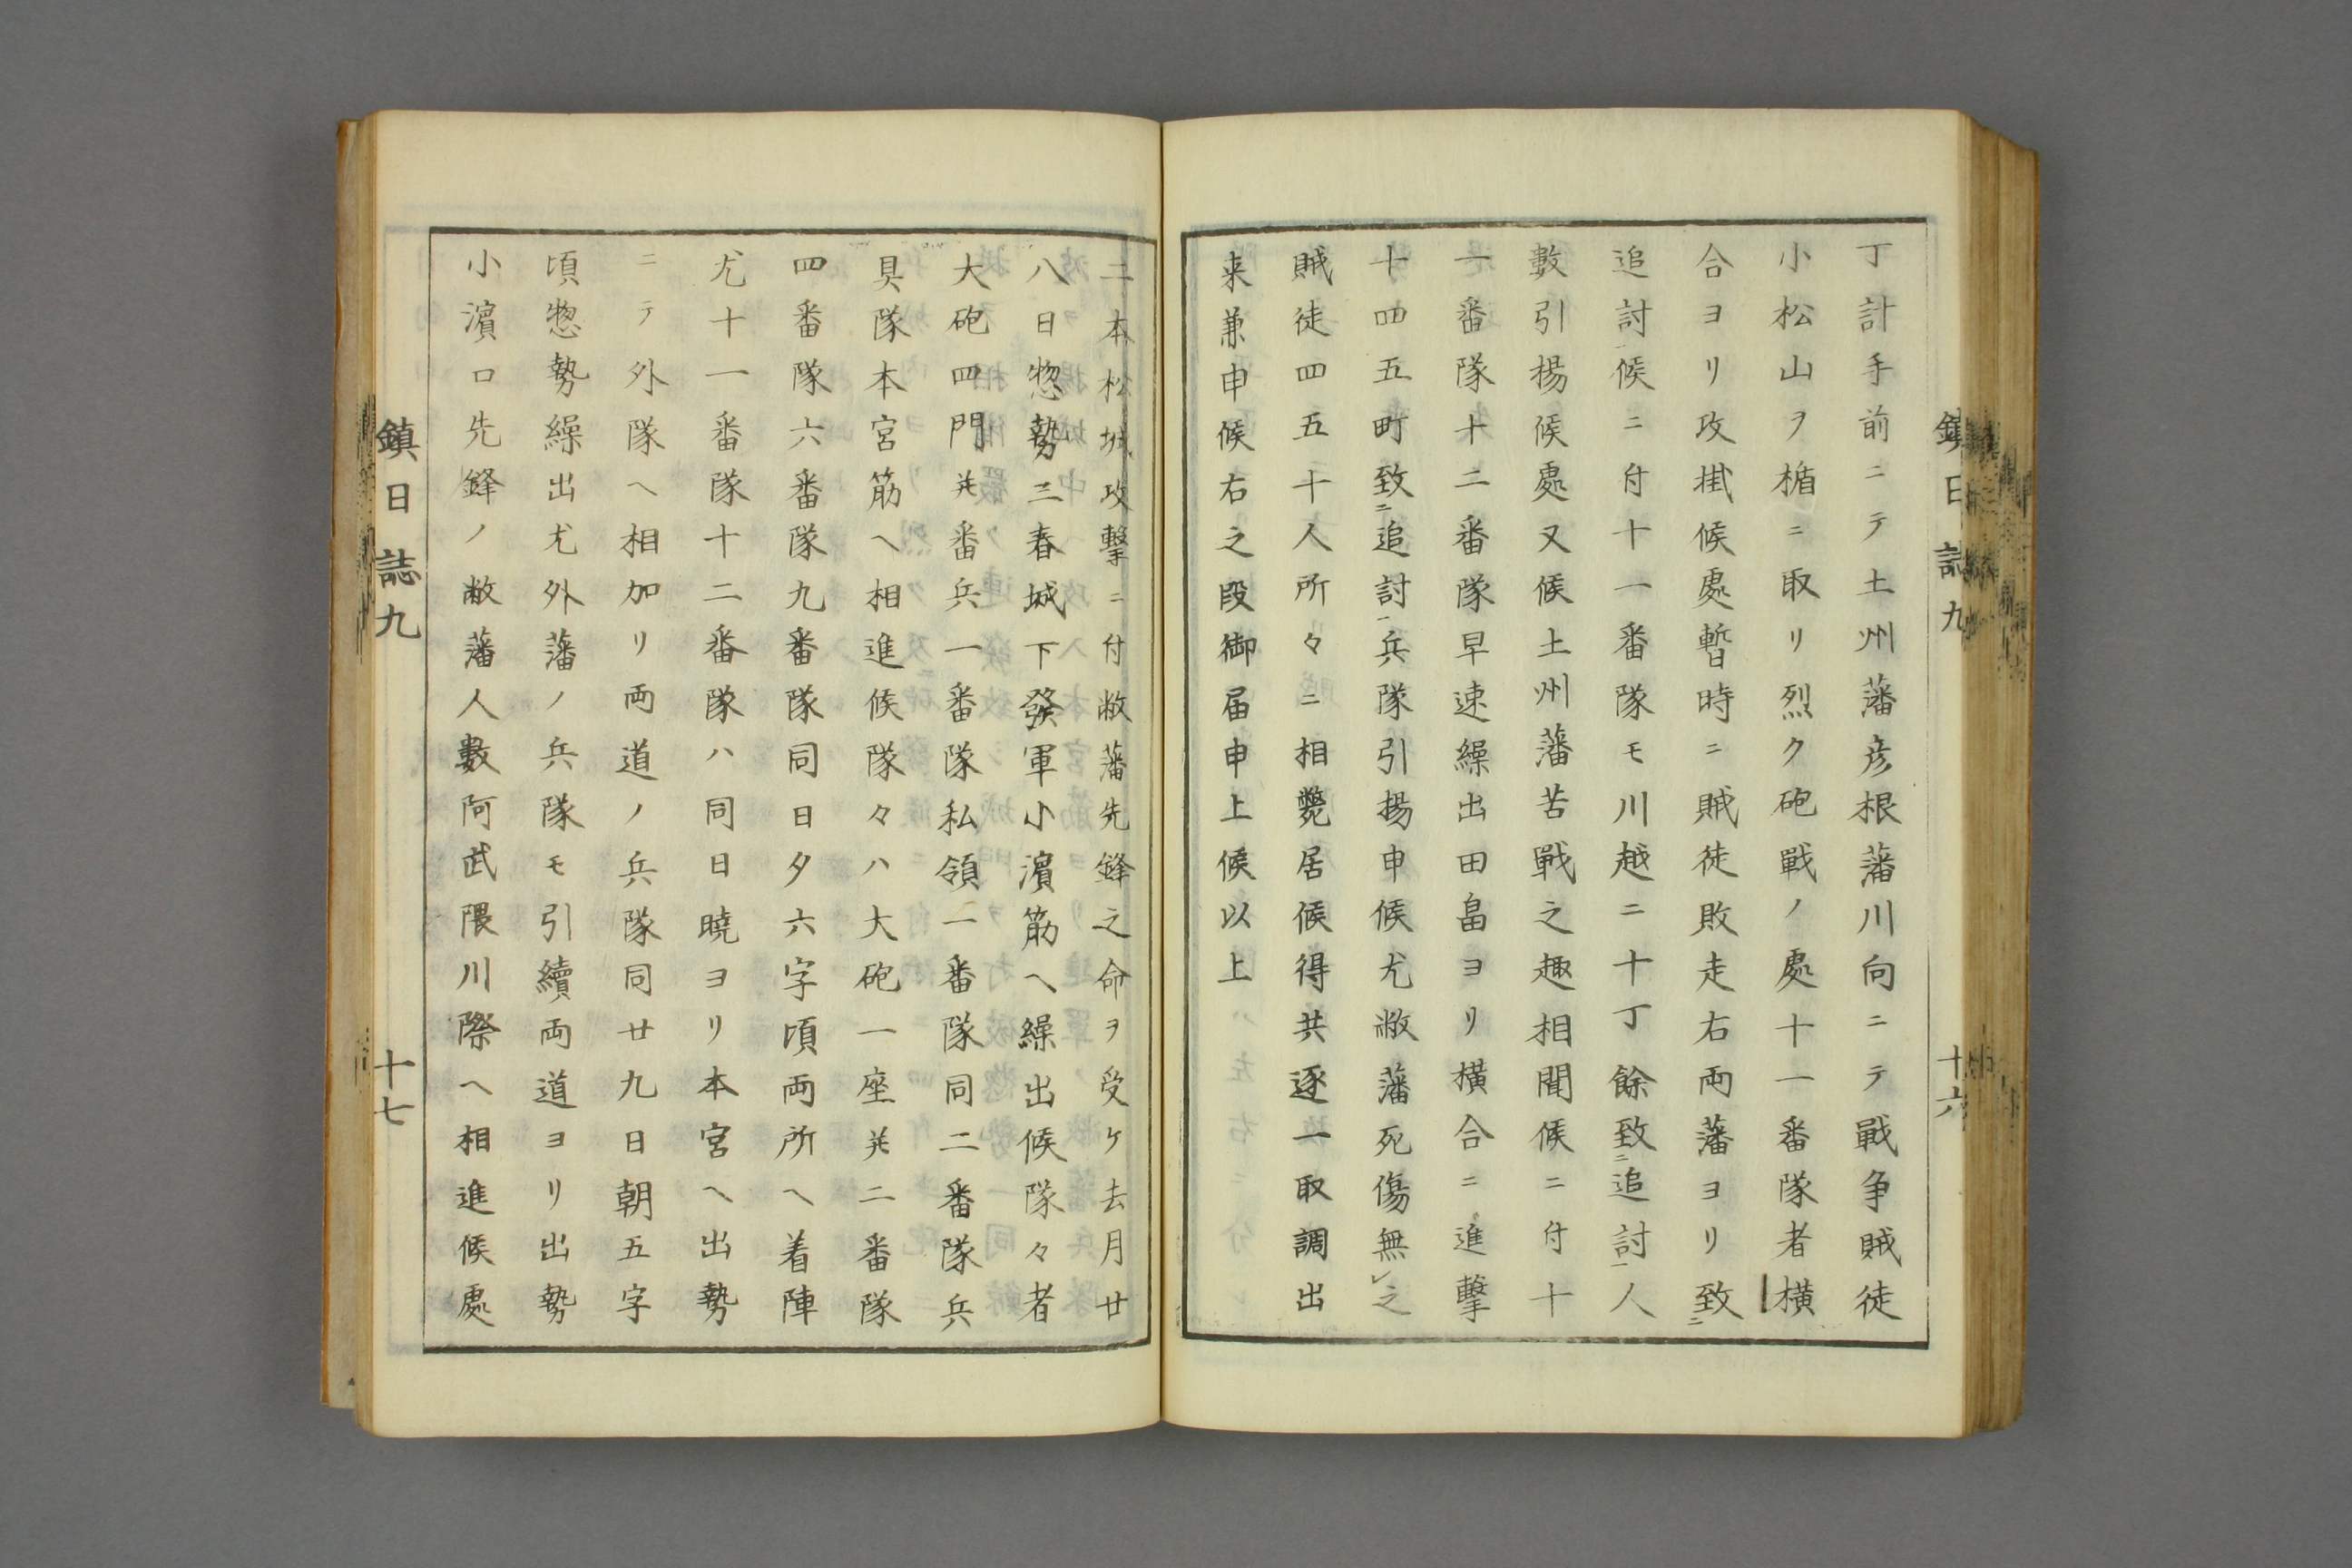 丁計手前ニテ土州藩彦根藩川向ニテ戰争賊徒
小松山ヲ楯ニ取リ烈ク砲戰ノ處十一番隊者横
合ヨリ攻掛候處暫時ニ賊徒敗走右両藩ヨリ致ニ
追討候ニ付十一番隊モ川越ニ十丁餘致ニ追討一人
數引揚候處又候土州藩苦戰之趣相聞候ニ付十
一番隊十二番隊早速繰出田畠ヨリ横合ニ進擊
十四五町致ニ追討一兵隊引揚申候尤敝藩死傷無レ之
賊徒四五十人所々ニ相斃居候得共逐一取調出
来兼申候右之段御届申上候以上
鎮日誌九
十六
二本松城攻擊ニ付敝藩先鋒之命ヲ受ケ去月廿
八日惣勢三春城下發軍小濵筋ヘ繰出候隊々者
大砲四門并番兵一番隊私領一番隊同二番隊兵
具隊本宮筋ヘ相進候隊々ハ大砲一座并二番隊
四番隊六番隊九番隊同日夕六字頃両所ヘ着陣
尤十一番隊十二番隊ハ同日曉ヨリ本宮ヘ出勢
ニテ外隊ヘ相加リ両道ノ兵隊同廿九日朝五字
頃惣勢繰出尤外藩ノ兵隊モ引續両道ヨリ出勢
小濵口先鋒ノ敝藩人數阿武隈川際ヘ相進候處
鎮日誌九
十七